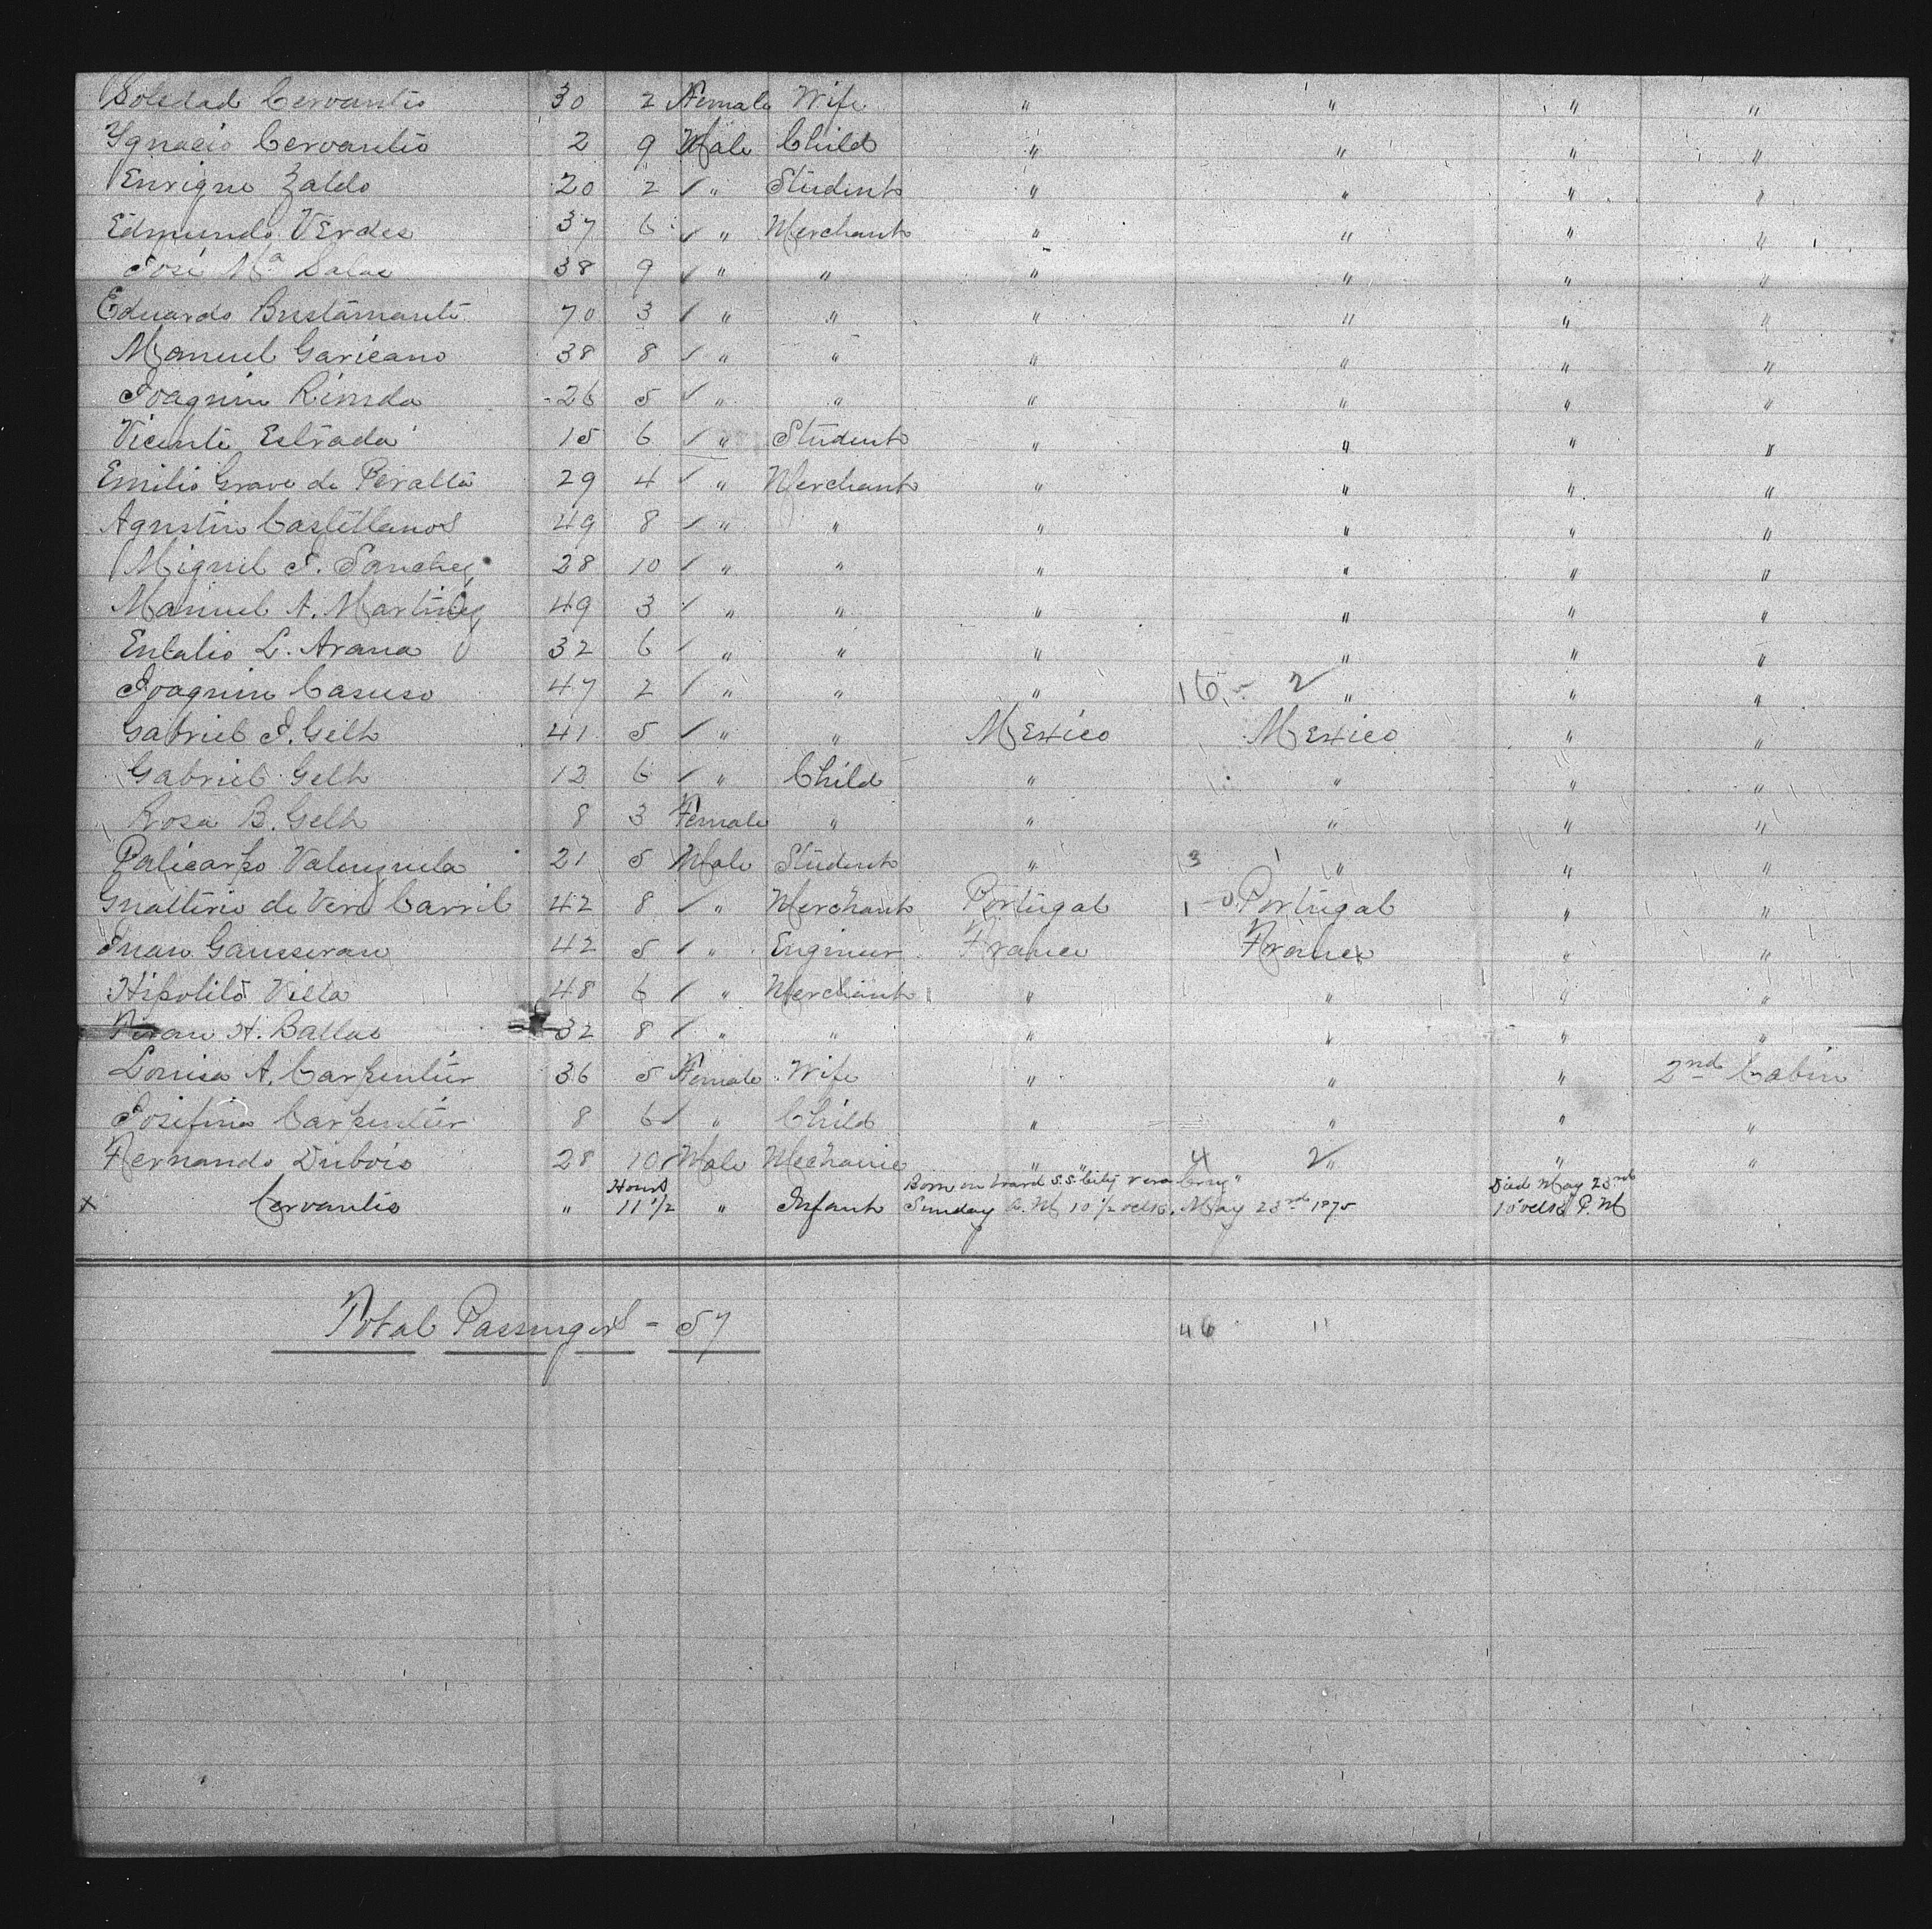 Soledad Cervantes 30 2 Female Wife " " " "
Ygnacio Cervantes 2 9 Male Child " " " "
Enrique Zaldo 20 2 / " Student " " " "
Edmundo Verdes 37 6 / " Merchant " " " "
José Ma Salas 38 9 / " " " " " "
Eduardo Bustamante 70 3 / " " " " " "
Manuel Garicano 38 8 / " " " " " "
Joaquin Rineda 26 5 / " " " " " "
Vicente Estrada 15 6 / " Student " " " "
Emilio Grave de Peralta 29 4 / " Merchant " " " "
Agustin Castellanos 49 8 / " " " " " "
Miguel S. Sanchez 28 10 / " " " " " "
Manuel A. Martinez 49 3 / " " " " " "
Eulalio L. Arana 32 6 / " " " " " "
Joaquin Casuso 47 2 / " " " 16 - 2 " " "
Gabriel J. Gelh 41 5 / " " Mexico Mexico " "
Gabriel Gelh 12 6 / " Child " " " "
Rosa B. Gelh 8 3 Female " " " " "
Policarpo Valenzuela 21 5 Male Student " 3 " " "
Gualterio de Vero Carril 42 8 / " Merchant Portugal 1 - 0 Portugal " "
Juan Gausseran 42 5 / " Engineer France France " "
Hipolito Villa 48 6 / " Merchant " " " "
H. Ballas 32 8 / " " " " " "
Louisa A. Carpenter 36 5 Female Wife " " " 2nd Cabin
Josefina Carpenter 8 6 / " Child " " " "
Fernando Dubois 28 10 Male Mechanic " 4 2 " " "
x Cervantes " Hours 11 1/2 " Infant Born on board S.S. "City Vera Cruz" Sunday A.M 10 1/2 oclk. May 23rd 1875 Died May 23rd 10 oclk P.M
Total Passengers - 57 46 11